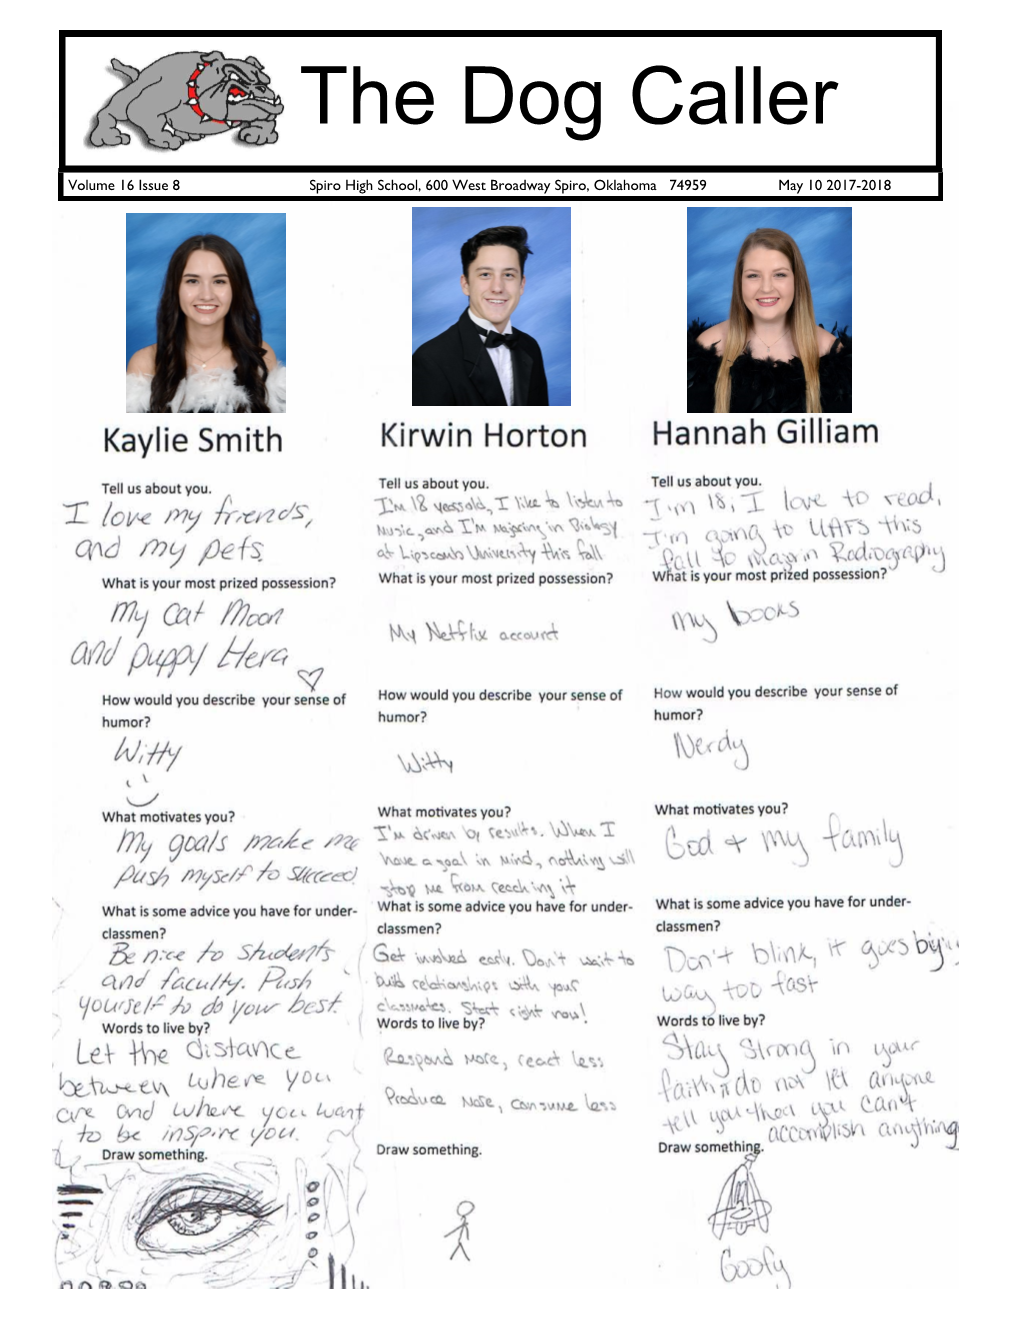 The Dog Caller
Volume 16 Issue 8 Spiro High School, 600 West Broadway Spiro, Oklahoma 74959 May 10 2017-2018
Kaylie Smith
Tell us about you.
I love my friends,
and my pets.
What is your most prized possession?
My cat Moon
and puppy Hera
How would you describe your sense of
humor?
Witty
What motivates you?
My goals make me
push myself to succeed.
What is some advice you have for under-
classmen?
Be nice to students
and faculty. Push
yourself to do your best.
Words to live by?
Let the distance
between where you
are and where you want
to be inspire you.
Draw something.
Kirwin Horton
Tell us about you.
I'm 18 years old, I like to listen to
Music, and I'm Majoring in Biology
at Lipscomb University this fall
What is your most prized possession?
My Netflix account
How would you describe your sense of
humor?
Witty
What motivates you?
I'm driven by results. When I
have a goal in mind, nothing will
stop me from reaching it
What is some advice you have for under-
classmen?
Get involved early. Don't wait to
build relationships with your
classmates. Start right now!
Words to live by?
Respond More, react less
Produce More, consume less
Draw something.
Hannah Gilliam
Tell us about you.
I'm 18, I love to read,
I'm going to UAFS this
fall to major in Radiography
What is your most prized possession?
my books
How would you describe your sense of
humor?
Nerdy
What motivates you?
God + my family
What is some advice you have for under-
classmen?
Don't blink, it goes by
way too fast
Words to live by?
Stay Strong in your
faith do not let anyone
tell you that you can't
accomplish anything
Draw something.
Goofy